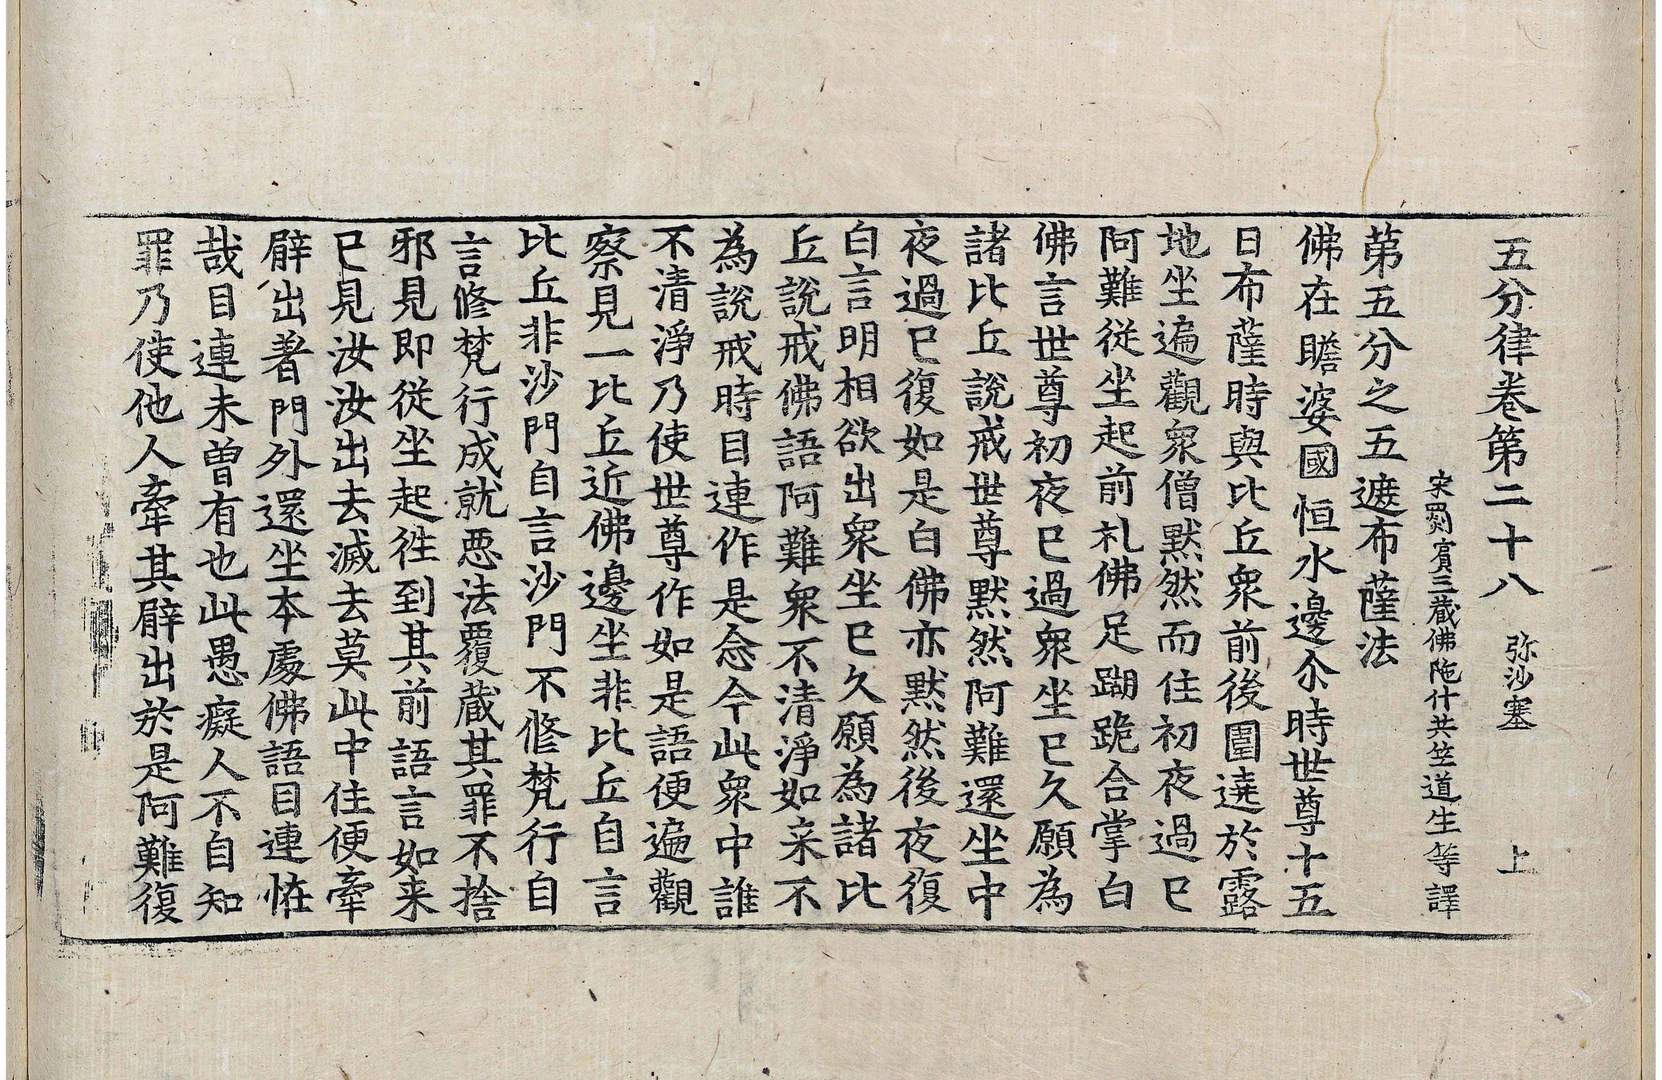 五分律卷第二十八 弥沙塞 上
宋罽賓三藏佛陁什共竺道生等譯
第五分之五遮布薩法
佛在瞻婆國恒水邊尒時世尊十五
日布薩時與比丘衆前後圍遶於露
地坐遍觀衆僧黙然而住初夜過已
阿難従坐起前礼佛足𨄔跪合掌白
佛言世尊初夜已過衆坐已久願為
諸比丘說戒世尊黙然阿難還坐中
夜過已復如是白佛亦黙然後夜復
白言明相欲出衆坐已久願為諸比
丘說戒佛語阿難衆不清淨如来不
為說戒時目連作是念今此衆中誰
不清淨乃使世尊作如是語便遍觀
察見一比丘近佛邊坐非比丘自言
比丘非沙門自言沙門不修梵行自
言修梵行成就惡法覆藏其罪不捨
邪見即從坐起徃到其前語言如来
已見汝汝出去滅去莫此中住便牽
臂出著門外還坐本處佛語目連恠
哉目連未曾有也此愚癡人不自知
罪乃使他人牽其臂出於是阿難復